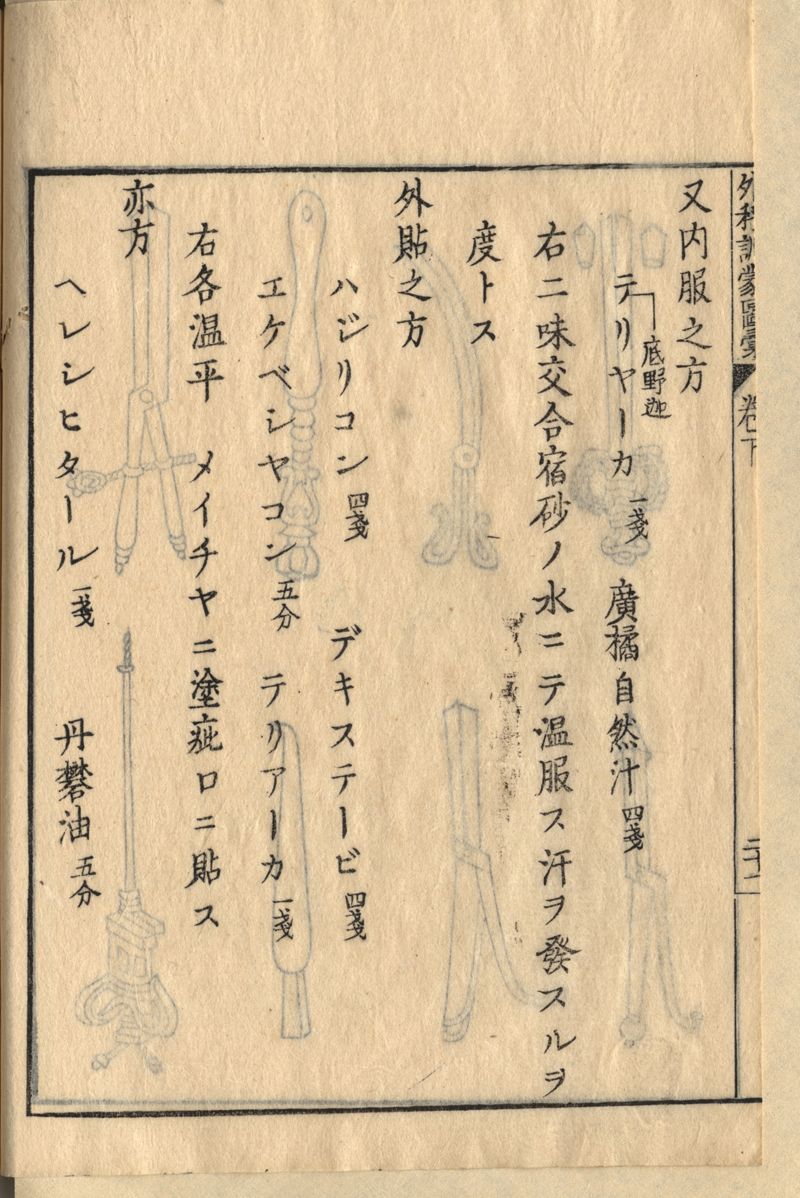 外科訓蒙圖彙 卷下
二十一
又内服之方
テリヤーカ 一戔 廣橘自然汁 四戔
底野迦
右二味交合宿砂ノ水ニテ温服ス汗ヲ發スルヲ
度トス
外貼之方
ハジリコン 四戔 デキステービ 四戔
エケベシヤコン 五分 テリアーカ 一戔
右各温平 メイチヤニ塗疵口ニ貼ス
亦方
ヘレシヒタール 一戔 丹礬油 五分